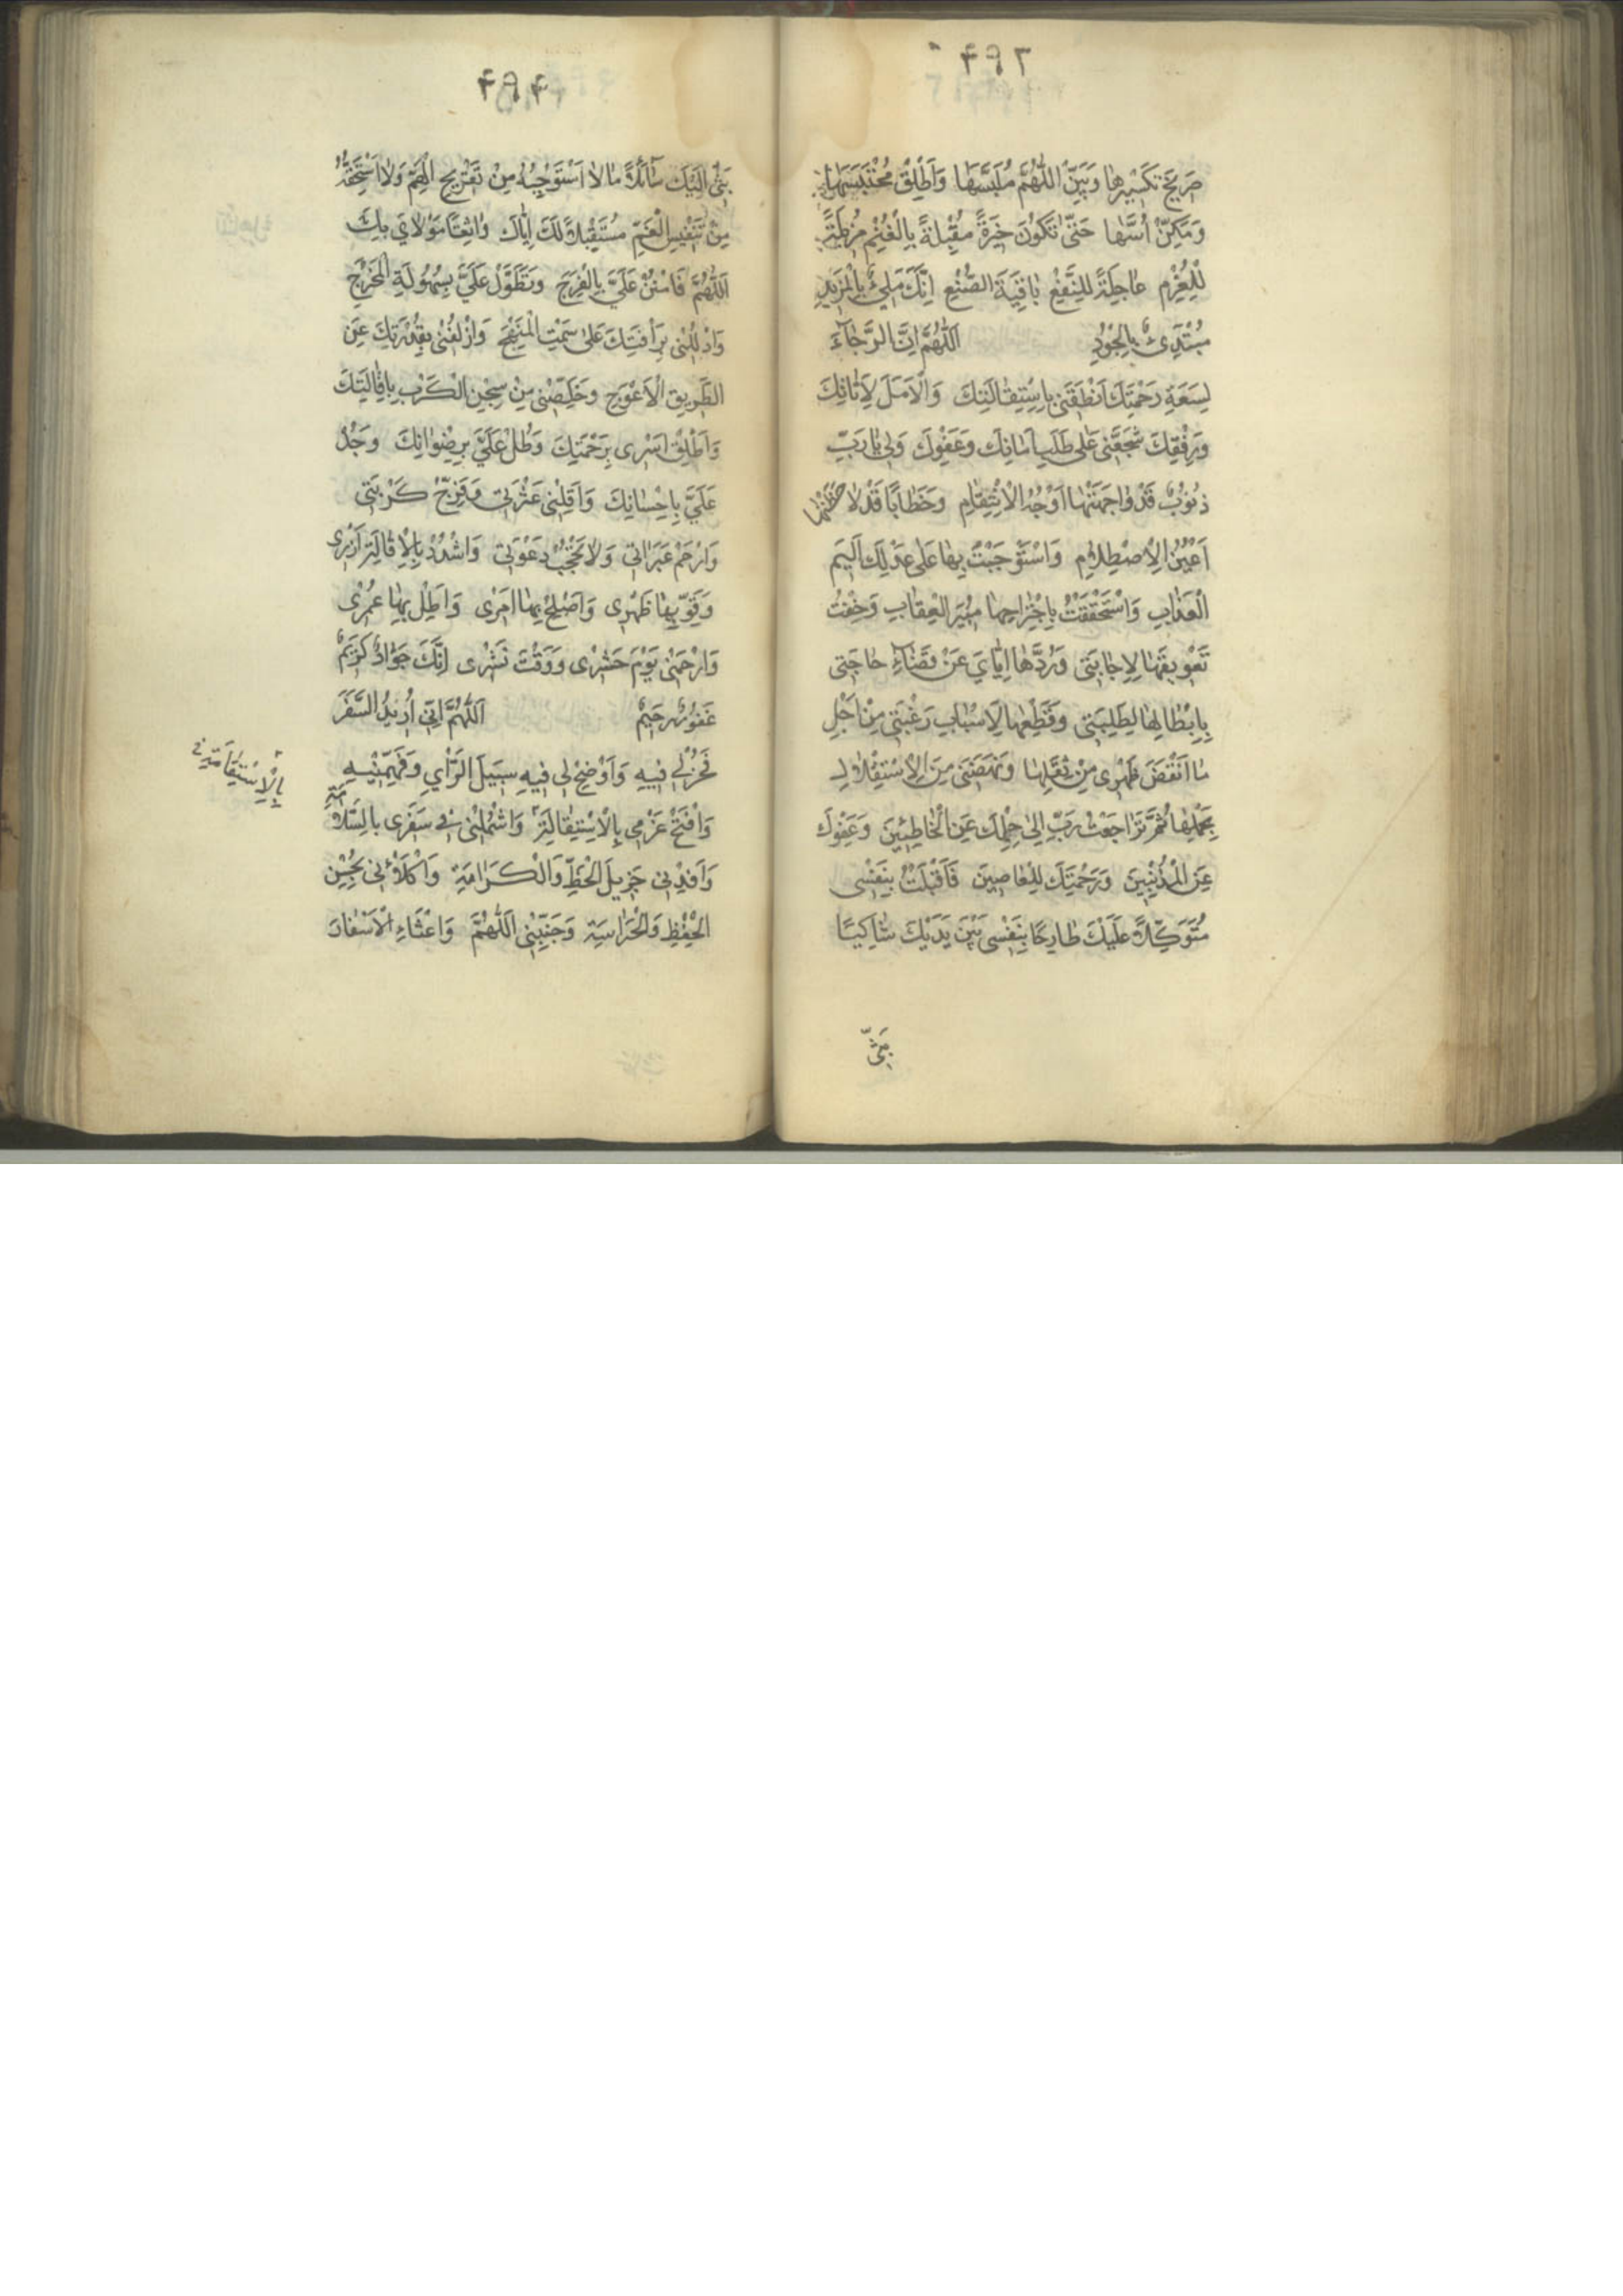 ۴۹۳
صَرِيحَ تَكْسِيرِهَا وَبَيِّنِ اللّٰهُمَّ مُلْتَبَسَهَا وَاَطْلِقْ مُحْتَبَسَهَا
وَمَكِّنْ اُسَّهَا حَتّٰى تَكُونَ خِيَرَةً مُقْبِلَةً بِالْغُنْمِ مُزِيلَةً
لِلْغُرْمِ عَاجِلَةً لِلنَّفْعِ بَاقِيَةَ الصُّنْعِ اِنَّكَ مَلِيٌّ بِالْمَزِيدِ
مُبْتَدِئٌ بِالْجُودِ اَللّٰهُمَّ اِنَّ الرَّجَاءَ
لِسَعَةِ رَحْمَتِكَ اَنْطَقَنِى بِاسْتِقَالَتِكَ وَالْاَمَلَ لِاَنَاتِكَ
وَرِفْقِكَ شَجَّعَنِى عَلٰى طَلَبِ اَمَانِكَ وَعَفْوِكَ وَلِى يَا رَبِّ
ذُنُوبٌ قَدْ وَاجَهَتْهَا اَوْجُهُ الْاِنْتِقَامِ وَخَطَايَا قَدْ لَاحَظَتْهَا
اَعْيُنُ الْاِصْطِلَامِ وَاسْتَوْجَبْتُ بِهَا عَلٰى عَدْلِكَ اَلِيمَ
الْعَذَابِ وَاسْتَحْقَقْتُ بِاجْتِرَاحِهَا مُبِيرَ الْعِقَابِ وَخِفْتُ
تَعْوِيقَهَا لِاِجَابَتِى وَرَدَّهَا اِيَّايَ عَنْ قَضَاءِ حَاجَتِى
بِاِبْطَالِهَا لِطَلِبَتِى وَقَطْعِهَا لِاَسْبَابِ رَغْبَتِى مِنْ اَجْلِ
مَا اَنْقَضَ ظَهْرِى مِنْ ثِقْلِهَا وَبَهَضَنِى مِنَ الْاِسْتِقْلَالِ
بِحَمْلِهَا ثُمَّ تَرَاجَعْتُ رَبِّ اِلٰى حِلْمِكَ عَنِ الْخَاطِئِينَ وَعَفْوِكَ
عَنِ الْمُذْنِبِينَ وَرَحْمَتِكَ لِلْعَاصِينَ فَاَقْبَلْتُ بِنَفْسِى
مُتَوَكِّلًا عَلَيْكَ طَارِحًا بِنَفْسِى بَيْنَ يَدَيْكَ شَاكِيًا
بَثّى
۴۹۴
بَثّى اِلَيْكَ سَائِلًا مَا لَا اَسْتَوْجِبُهُ مِنْ تَفْرِيجِ الْهَمِّ وَلَا اَسْتَحِقُّهُ
مِنْ تَنْفِيسِ الْغَمِّ مُسْتَقْبِلًا لَكَ اِيَّاكَ وَاثِقًا مَوْلَايَ بِكَ
اَللّٰهُمَّ فَامْنُنْ عَلَيَّ بِالْفَرَجِ وَتَطَوَّلْ عَلَيَّ بِسُهُولَةِ الْمَخْرَجِ
وَادْلُلْنِى بِرَأْفَتِكَ عَلٰى سَمْتِ الْمَنْهَجِ وَازْلِفْنِى بِقُدْرَتِكَ عَنِ
الطَّرِيقِ الْاَعْوَجِ وَخَلِّصْنِى مِنْ سِجْنِ الْكَرْبِ بِاِقَالَتِكَ
وَاَطْلِقْ اَسْرِى بِرَحْمَتِكَ وَطُلْ عَلَيَّ بِرِضْوَانِكَ وَجُدْ
عَلَيَّ بِاِحْسَانِكَ وَاَقِلْنِى عَثْرَتِى وَفَرِّجْ كَرْبَتِى
وَارْحَمْ عَبَرَاتِى وَلَا تَحْجُبْ دَعْوَتِى وَاشْدُدْ بِالْاِقَالَةِ اَزْرِى
وَقَوِّ بِهَا ظَهْرِى وَاَصْلِحْ بِهَا اَمْرِى وَاَطِلْ بِهَا عُمْرِى
وَارْحَمْنِى يَوْمَ حَشْرِى وَوَقْتَ نَشْرِى اِنَّكَ جَوَادٌ كَرِيمٌ
غَفُورٌ رَحِيمٌ اَللّٰهُمَّ اِنِّى اُرِيدُ السَّفَرَ
فَخِرْ لِى فِيهِ وَاَوْضِحْ لِى فِيهِ سَبِيلَ الرَّأْىِ وَفَهِّمْنِيهِ
وَافْتَحْ عَزْمِى بِالْاِسْتِقَالَةِ وَاشْمُلْنِى فِى سَفَرِى بِالسَّلَامَةِ
بِالْاِسْتِقَامَةِ
وَاَفِدْنِى جَزِيلَ الْحَظِّ وَالْكَرَامَةِ وَاكْلَأْنِى بِحُسْنِ
الْحِفْظِ وَالْحَرَاسَةِ وَجَنِّبْنِى اَللّٰهُمَّ وَاعْثَاءِ الْاَسْفَارَ